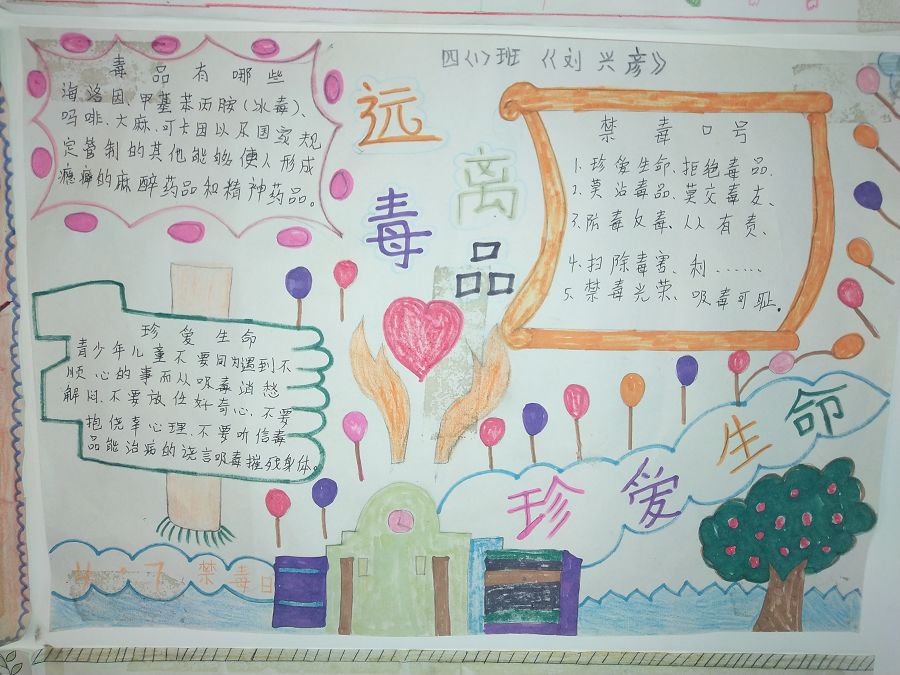 四(1)班《刘兴彦》
毒品有哪些
海洛因、甲基苯丙胺(冰毒)、
吗啡、大麻、可卡因以及国家规
定管制的其他能够使人形成
瘾癖的麻醉药品和精神药品。
远
离
毒
品
禁毒口号
1.珍爱生命、拒绝毒品、
2.莫沾毒品、莫交毒友、
3.防毒反毒、人人有责、
4.扫除毒害、利……
5.禁毒光荣、吸毒可耻。
珍爱生命
青少年儿童不要因为遇到不
顺心的事而从吸毒消愁
解闷、不要放任好奇心、不要
抱侥幸心理、不要听信毒
品能治病的谎言吸毒摧残身体。
珍爱生命
禁毒日